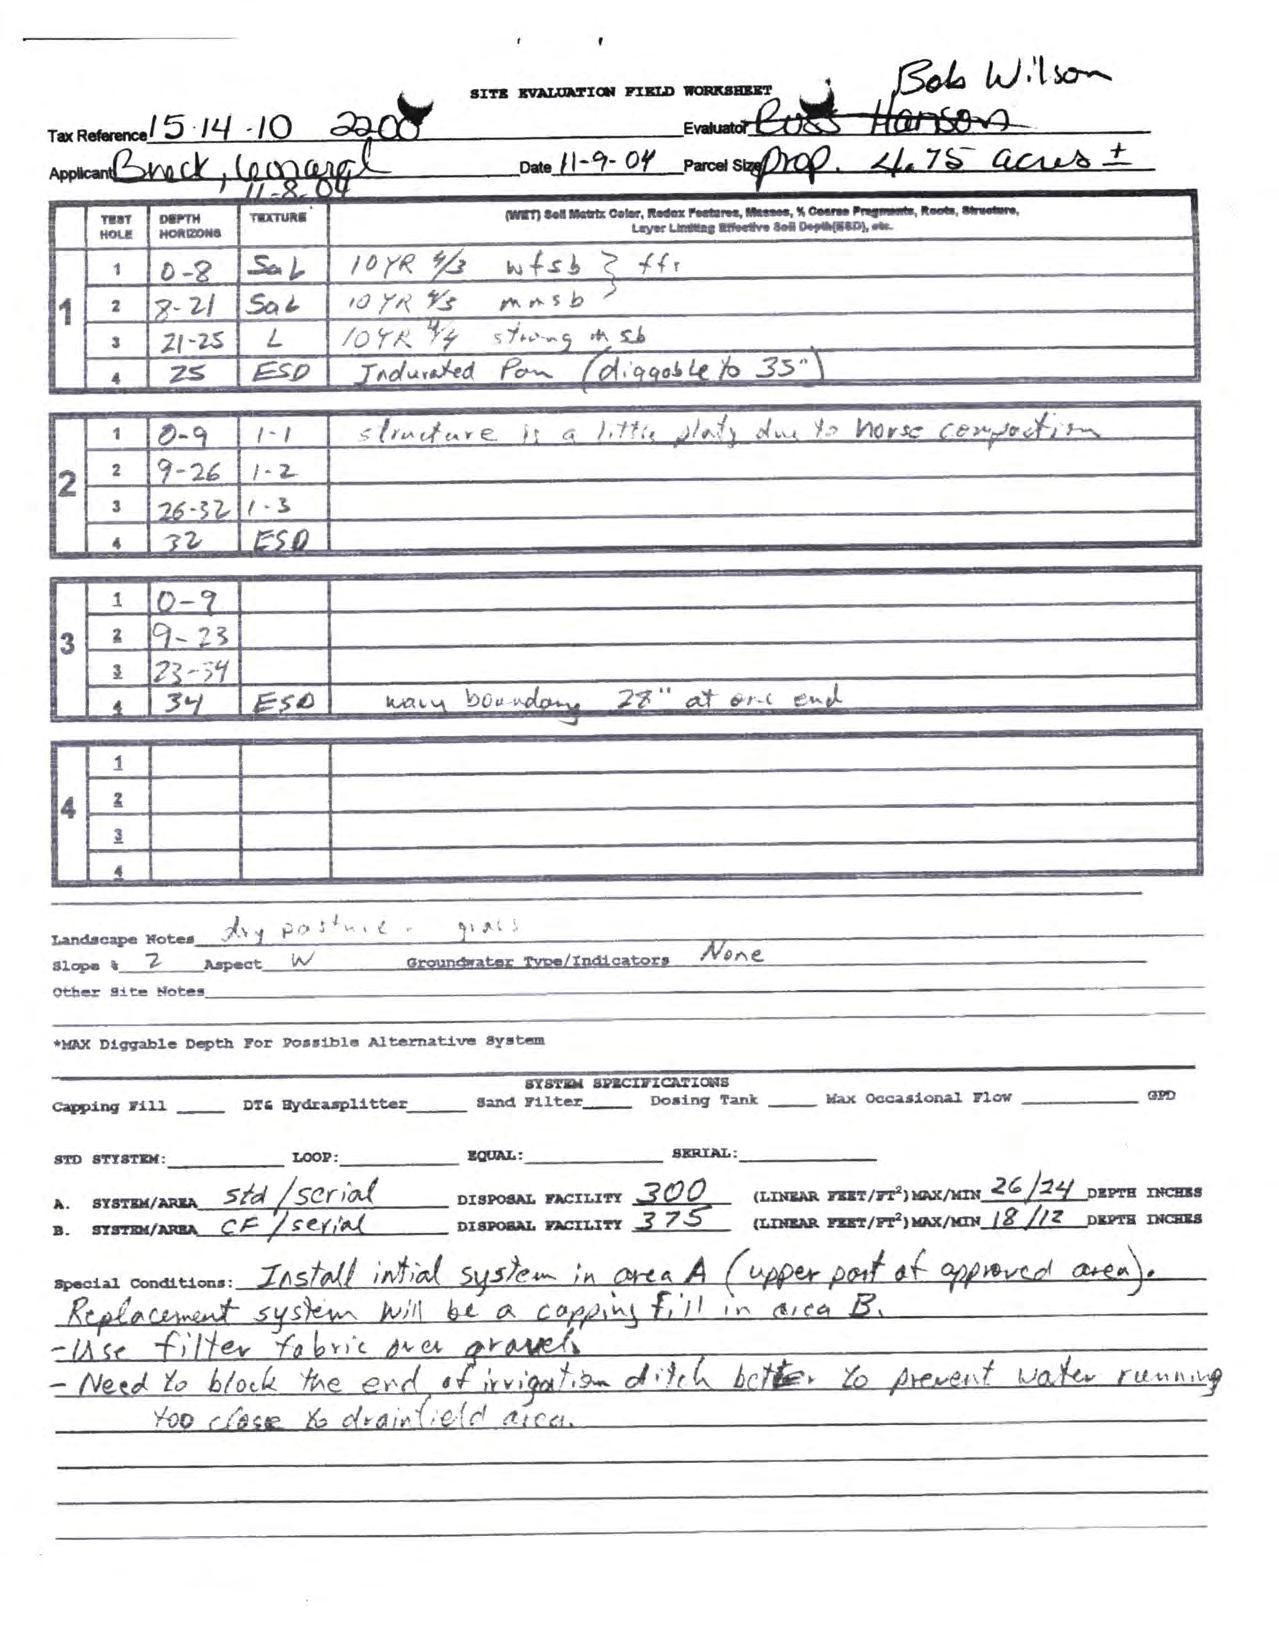 Bob Wilson
SITE EVALUATION FIELD WORKSHEET
Tax Reference 15-14-10 2200 Evaluator Hanson
Applicant Date 11-9-04 Parcel Size prop. 4.75 acres ±
11-8-04
TEST HOLE DEPTH HORIZONS TEXTURE (WET) Soil Matrix Color, Redox Features, Masses, % Coarse Fragments, Roots, Structure,
Layer Limiting Effective Soil Depth(ESD), etc.
1
1 0-8 SaL 10YR wfsb } ffr
2 8-21 SaL 10YR mmsb
3 21-25 L 10YR strong m sb
4 25 ESD Indurated Pan (diggable to 35")
2
1 0-9 1-1 structure is a little platy due to horse compaction
2 9-26 1-2
3 26-32 1-3
4 32 ESD
3
1 0-9
2 9-23
3 23-34
4 34 ESD wavy boundary 28" at one end
4
1
2
3
4
Landscape Notes dry pasture - grass
Slope % 2 Aspect W Groundwater Type/Indicators None
Other Site Notes
*MAX Diggable Depth For Possible Alternative System
SYSTEM SPECIFICATIONS
Capping Fill DT& Hydrasplitter Sand Filter Dosing Tank Max Occasional Flow GPD
STD STYSTEM: LOOP: EQUAL: SERIAL:
A. SYSTEM/AREA std/serial DISPOSAL FACILITY 300 (LINEAR FEET/FT²) MAX/MIN 26/24 DEPTH INCHES
B. SYSTEM/AREA CF/serial DISPOSAL FACILITY 375 (LINEAR FEET/FT²) MAX/MIN 18/12 DEPTH INCHES
Special Conditions: Install intial system in area A (upper part of approved area).
Replacement system will be a capping fill in area B.
- Use filter fabric over gravel.
- Need to block the end of irrigation ditch better to prevent water running
too close to drainfield area.